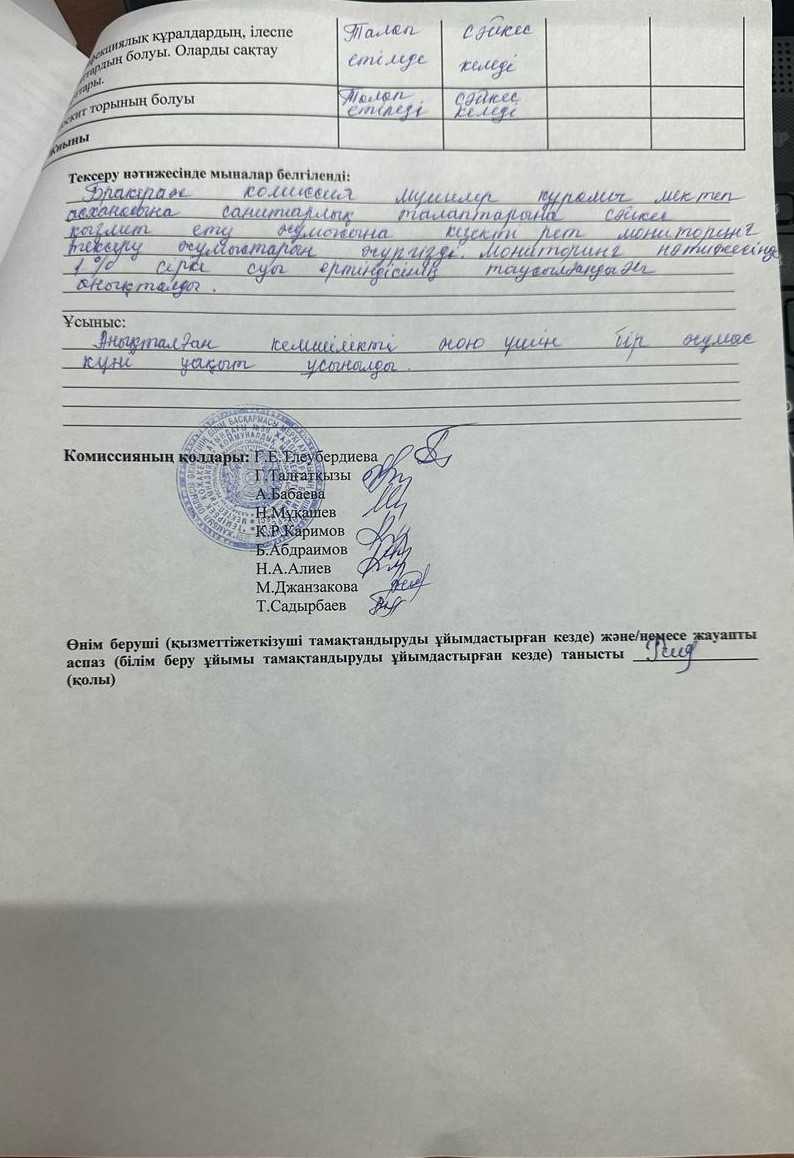 құралдардың, ілеспе Талап сәйкес
болуы. Оларды сақтау етіледе келеді
торының болуы Талап сәйкес
етіледі келеді
Тексеру нәтижесінде мыналар белгіленді:
Бракераж комиссия мүшелер құрамы мектеп
асханасына санитарлық талаптарына сәйкес
қызмет ету жұмысына кезекті рет мониторинг
тексеру жұмыстарын жүргізді. Мониторинг нәтижесінде
1% сірке суы ертіндісінің таусылғандығы
анықталды.
Ұсыныс:
Анықталған кемшілікті жою үшін бір жұмыс
күні уақыт ұсынылды.
Комиссияның қолдары: Г.Е.Тлеубердиева
Г.Талғатқызы
А.Бабаева
Н.Мұқашев
К.Р.Каримов
Б.Абдраимов
Н.А.Алиев
М.Джанзакова
Т.Садырбаев
Өнім беруші (қызметтіжеткізуші тамақтандыруды ұйымдастырған кезде) және/немесе жауапты
аспаз (білім беру ұйымы тамақтандыруды ұйымдастырған кезде) танысты
(қолы)